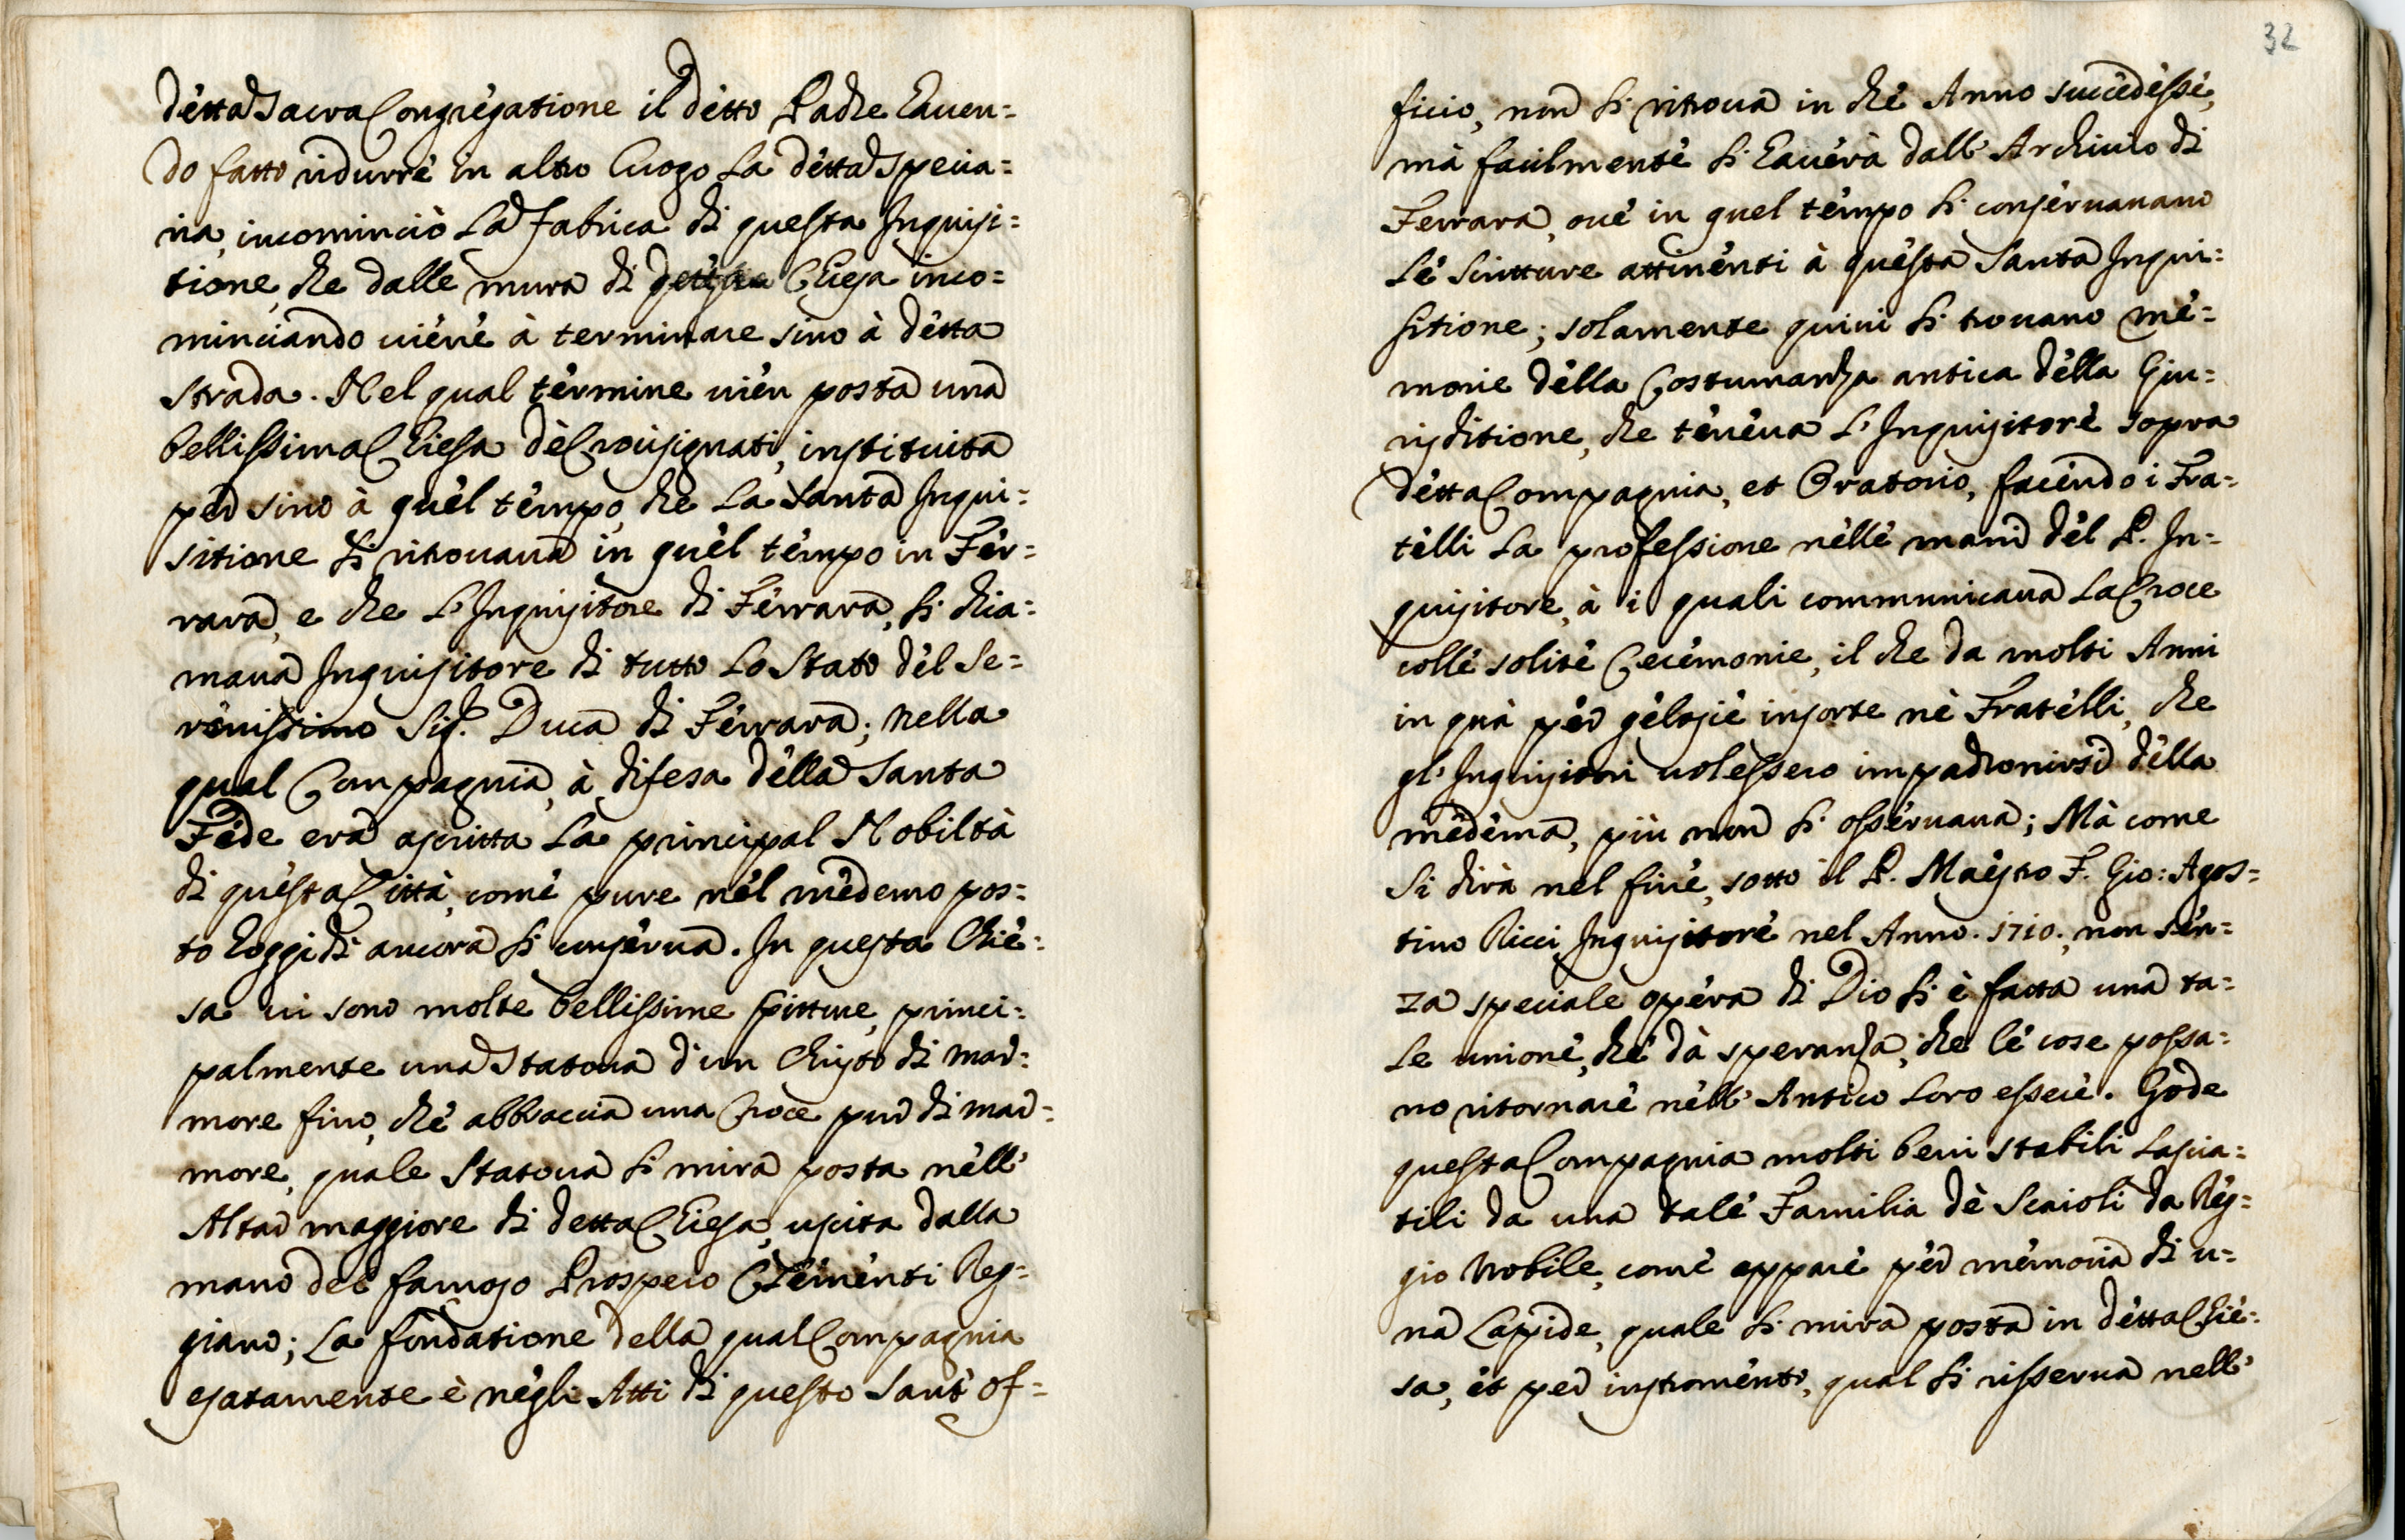 detta Sacra Congregatione il detto Padre haven=
do fatto ridurre in altro luogo la detta specia=
ria, incominciò la fabrica di questa Inquisi=
tione, che dalle mura di Chiesa inco=
minciando viene à terminare sino à detta
strada. Nel qual termine vien posta una
bellissima Chiesa dè Crocisignati, instituita
per sino à quel tempo, che la Santa Inqui=
sitione si ritrovava in quel tempo in Fer=
rara, e che l'Inquisitore di Ferrara, si chia=
mava Inquisitore di tutto lo Stato del Se=
renissimo Sig.r Duca di Ferrara; nella
qual Compagnia, à difesa della Santa
Fede era ascritta la principal Nobiltà
di questa Città, come pure nel medemo pos=
to hoggidi ancora si conserva. In questa Chie=
sa vi sono molte bellissime pitture, princi=
palmente una Statova d'un Christo di mar=
more fino, che abbraccia una Croce pur di mar=
more, quale Statova si mira posta nell'
Altar maggiore di detta Chiesa, uscita dalla
mano del famoso Prospero Clementi Reg=
giano; la fondatione della qual Compagnia
esatamente è negli Atti di questo Sant' Of=
32
ficio, non si ritrova in che Anno succedesse,
mà facilmente si haverà dall' Archivio di
Ferrara, ove in quel tempo si conservavano
le scritture attinenti à questa Santa Inqui=
sitione; solamente quivi si trovano me=
morie della Costumanza antica della Giu=
risditione, che teneva l'Inquisitore sopra
detta Compagnia, et Oratorio, facendo i Fra=
telli la professione nelle mani del P. In=
quisitore, à i quali communicava la Croce
colle solite Ceremonie, il che da molti Anni
in quà per gelosie insorte nè Fratelli, che
gl' Inquisitori volessero impadronirsi della
medema, più non si osservava; Mà come
si dirà nel fine, sotto il P. Maestro F. Gio: Agos=
tino Ricci Inquisitore nel Anno. 1710. non sen=
za speciale opera di Dio si è fatta una ta=
le unione, che dà speranza, che le cose possa=
no ritornare nell' Antico loro essere. Gode
questa Compagnia molti beni stabili lascia=
tili da una tale Familia dè Scaioli da Reg=
gio Nobile, come appare per memoria di u=
na Lapide, quale si mira posta in detta Chie=
sa, et per instromento, qual si risserva nell'